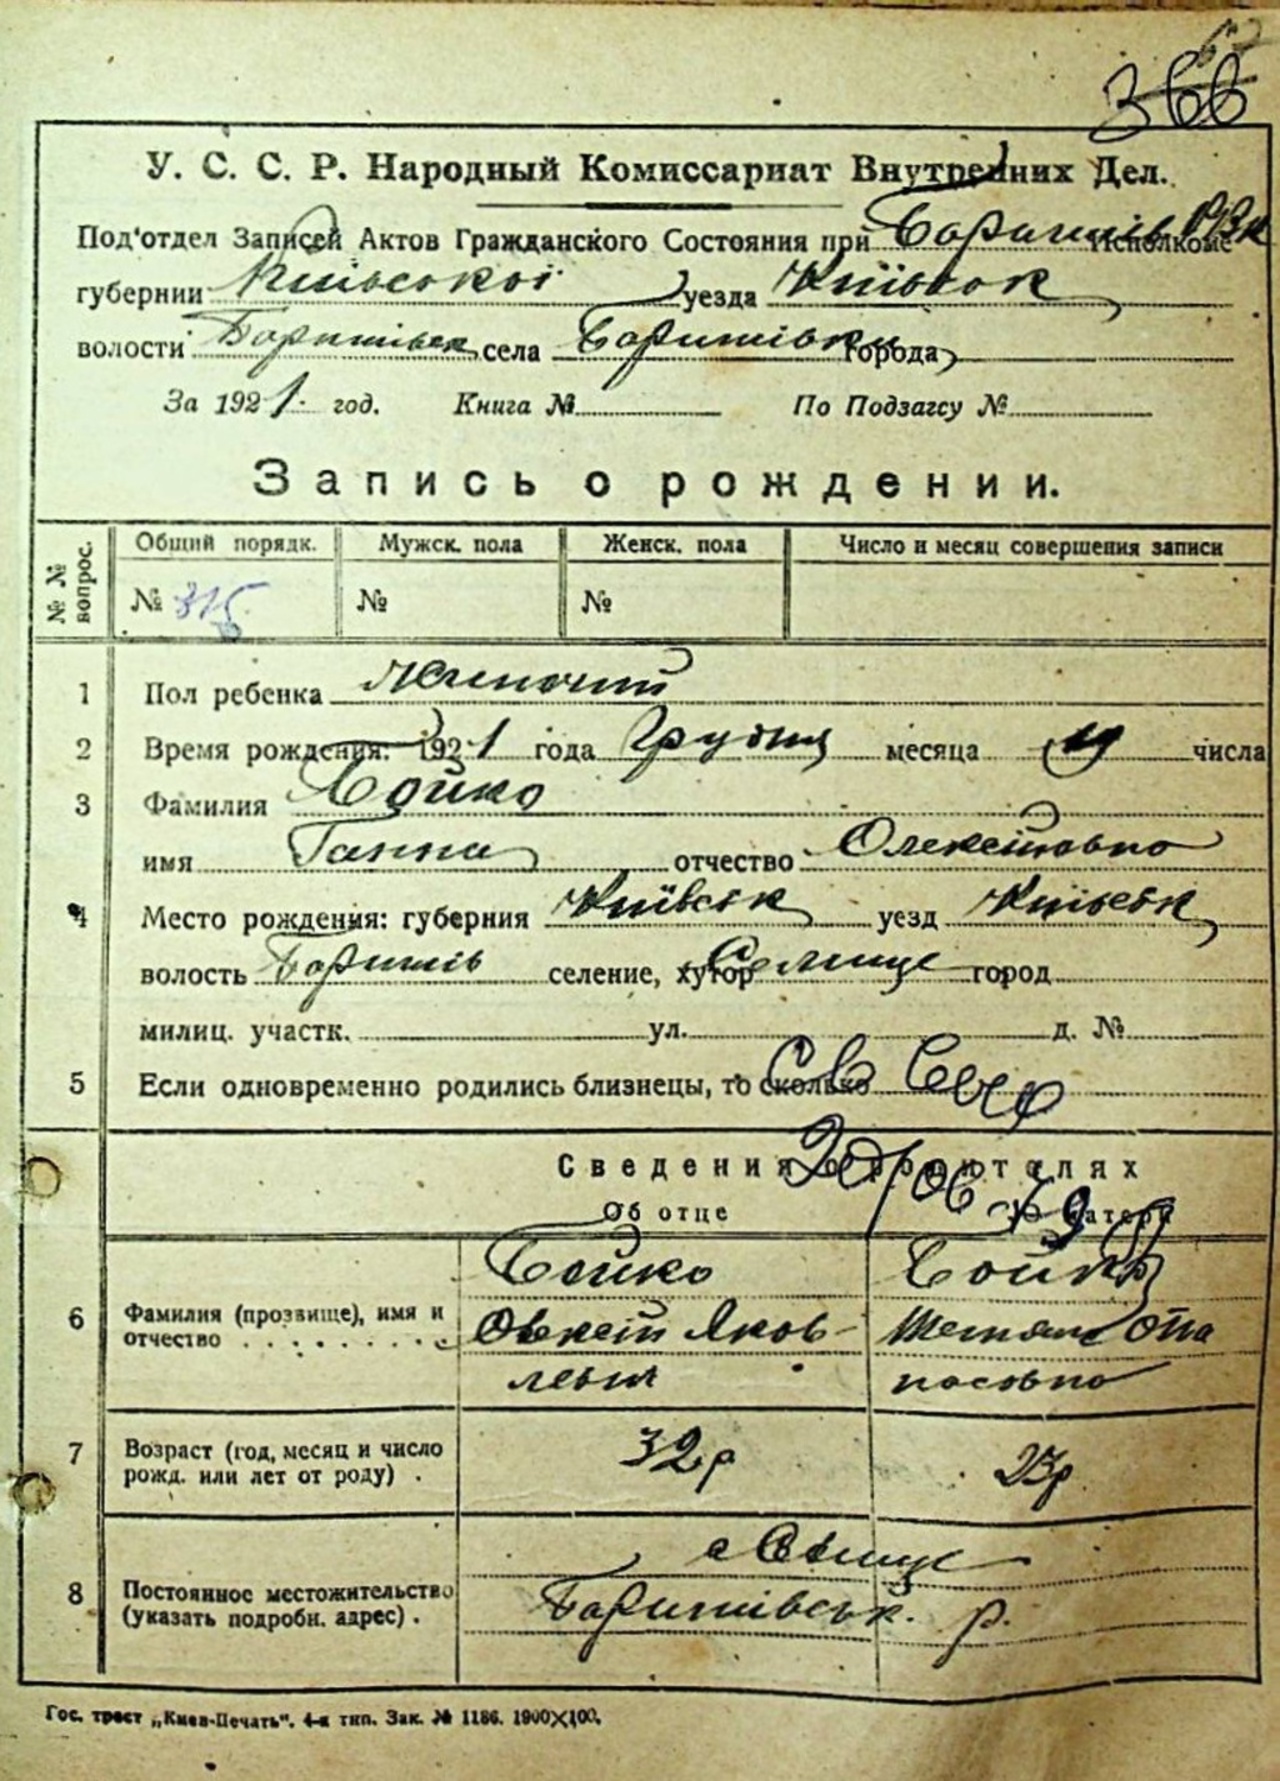 366
У. С. С. Р. Народный Комиссариат Внутренних Дел.
Под'отдел Записей Актов Гражданского Состояния при Баришів РВК Исполкоме
губернии Київської уезда Київськ
волости Баришівск села Баришівка города
За 1921 год. Книга № По Подзагсу №
Запись о рождении.
№№ вопрос. Общий порядк. Мужск. пола Женск. пола Число и месяц совершения записи
№ 315 № №
1 Пол ребенка Жиночий
2 Время рождения: 1921 года Грудня месяца числа
3 Фамилия Бойко
имя Ганна отчество Олексіївна
4 Место рождения: губерния Київськ уезд Київськ
волость Баришів селение, хутор Селище город
милиц. участк. ул. д. №
5 Если одновременно родились близнецы, то сколько
Сведения о родителях
Об отце О матери
6 Фамилия (прозвище), имя и отчество
Бойко Бойко
Олексій Яков- Тетяна Опа
левич насовна
7 Возраст (год, месяц и число рожд. или лет от роду) . 32р 23р
8 Постоянное местожительство (указать подробн. адрес) .
с Селище
Баришівськ. р.
Гос. трест „Киев-Печать". 4-я тип. Зак. № 1186. 1900×100.